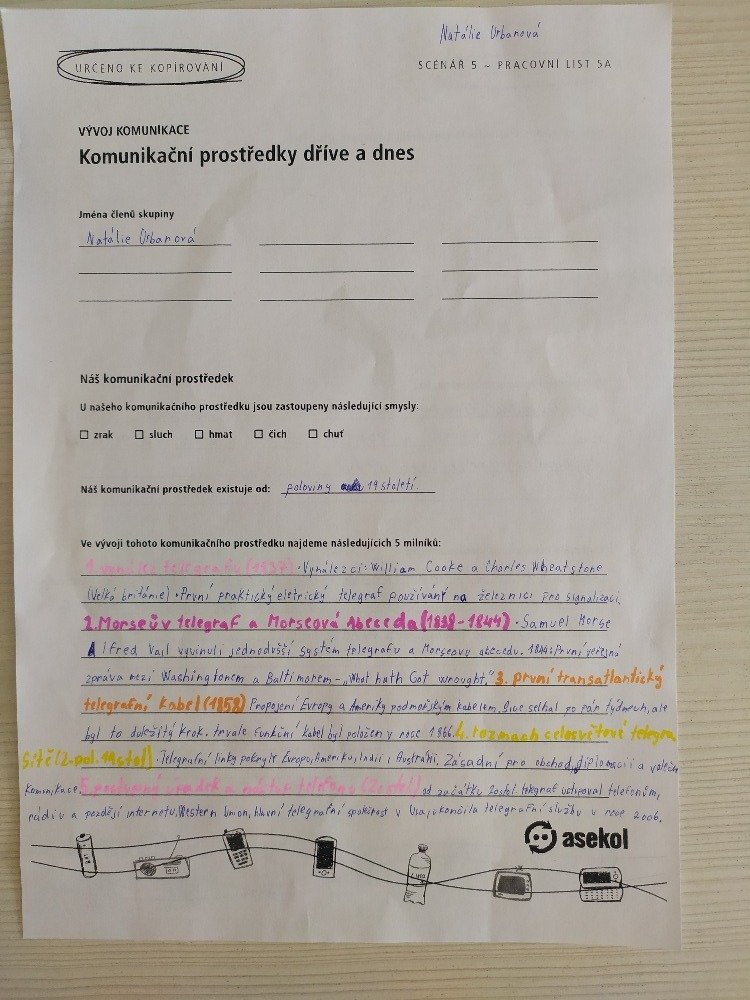 Natálie Urbanová
URČENO KE KOPÍROVÁNÍ
SCÉNÁŘ 5 ~ PRACOVNÍ LIST 5A
VÝVOJ KOMUNIKACE
Komunikační prostředky dříve a dnes
Jména členů skupiny
Natálie Urbanová
Náš komunikační prostředek
U našeho komunikačního prostředku jsou zastoupeny následující smysly:
zrak sluch hmat čich chuť
Náš komunikační prostředek existuje od: poloviny 19 století.
Ve vývoji tohoto komunikačního prostředku najdeme následujících 5 milníků:
1. vynález telegrafu (1837) • Vynálezci: William Cooke a Charles Wheatstone
(Velká británie) • První praktický eletrický telegraf používaný na železnici pro signalizaci.
2. Morseův telegraf a Morseová Abeceda (1838-1844) • Samuel Morse
Alfred Vail vyvinuli jednodušší systém telegrafu a Morseovy abecedu. 1844: První veřejná
zpráva mezi Washingtonem a Baltimorem - „What hath Got wrought." 3. první transatlantický
telegrafní kabel (1858) Propojení Evropy a Ameriky podmořským kabelem, Sice selhal po pár týdnech, ale
byl to duležitý krok. trvale funkční kabel byl položen v roce 1866. 4. rozmach celosvětové telegra.
Sítě (2-pol. 19 stol) • Telegrafní linky pokryje Evropu, Ameriku, Indii i Austrálii. Zásadní pro obchod, diplomacii a
komunikace. 5. postupný úpadek a nástup telefonu (20 stol) od začátku 20 stol telegraf ustupoval telefonům,
rádiu a pozdějí internetu. Western Union, hlavní telegrafní společnost v Usa, ukončila telegrafní službu v roce 2006.
asekol